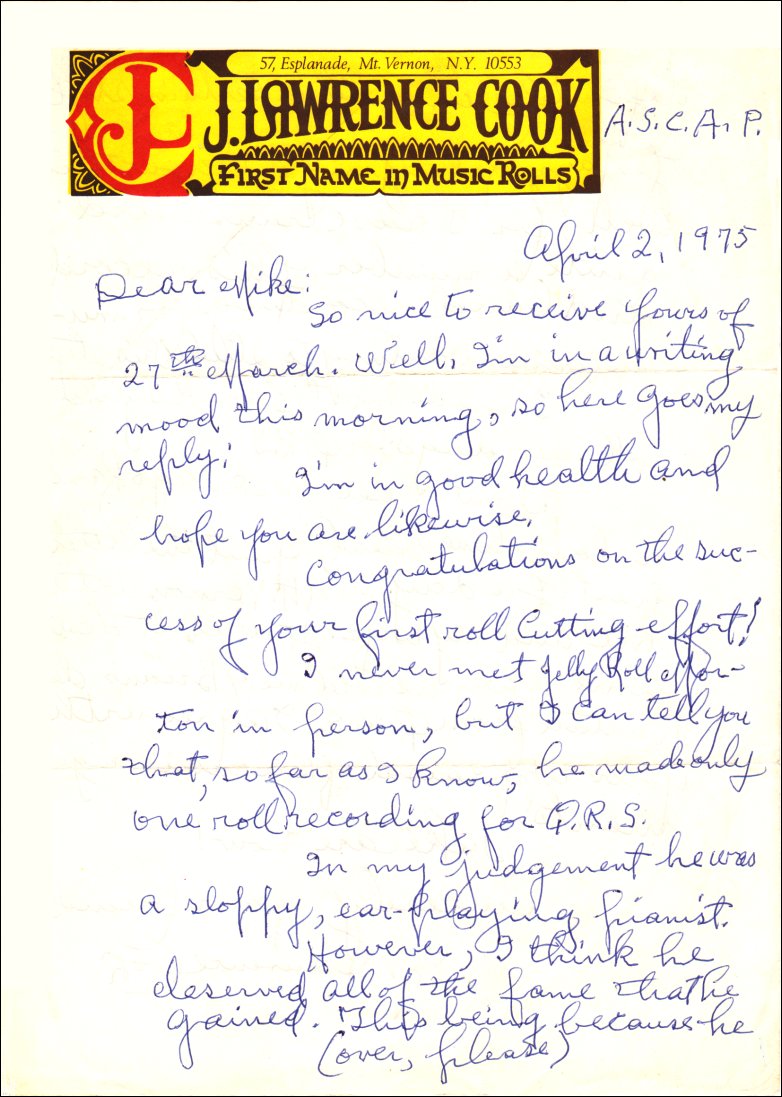 57, Esplanade, Mt. Vernon, N.Y. 10553
J. LAWRENCE COOK
A.S.C.A.P.
FIRST NAME in MUSIC ROLLS
April 2, 1975
Dear Mike:
So nice to receive yours of
27th March. Well, I'm in a writing
mood this morning, so here goes my
reply:
I'm in good health and
hope you are likewise.
Congratulations on the suc-
cess of your first roll cutting effort!
I never met Jelly Roll Mor-
ton in person, but I can tell you
that, so far as I know, he made only
one roll recording for Q.R.S.
In my judgement he was
a sloppy, ear-playing pianist.
However, I think he
deserved all of the fame that he
gained. This being because he
(over, please)